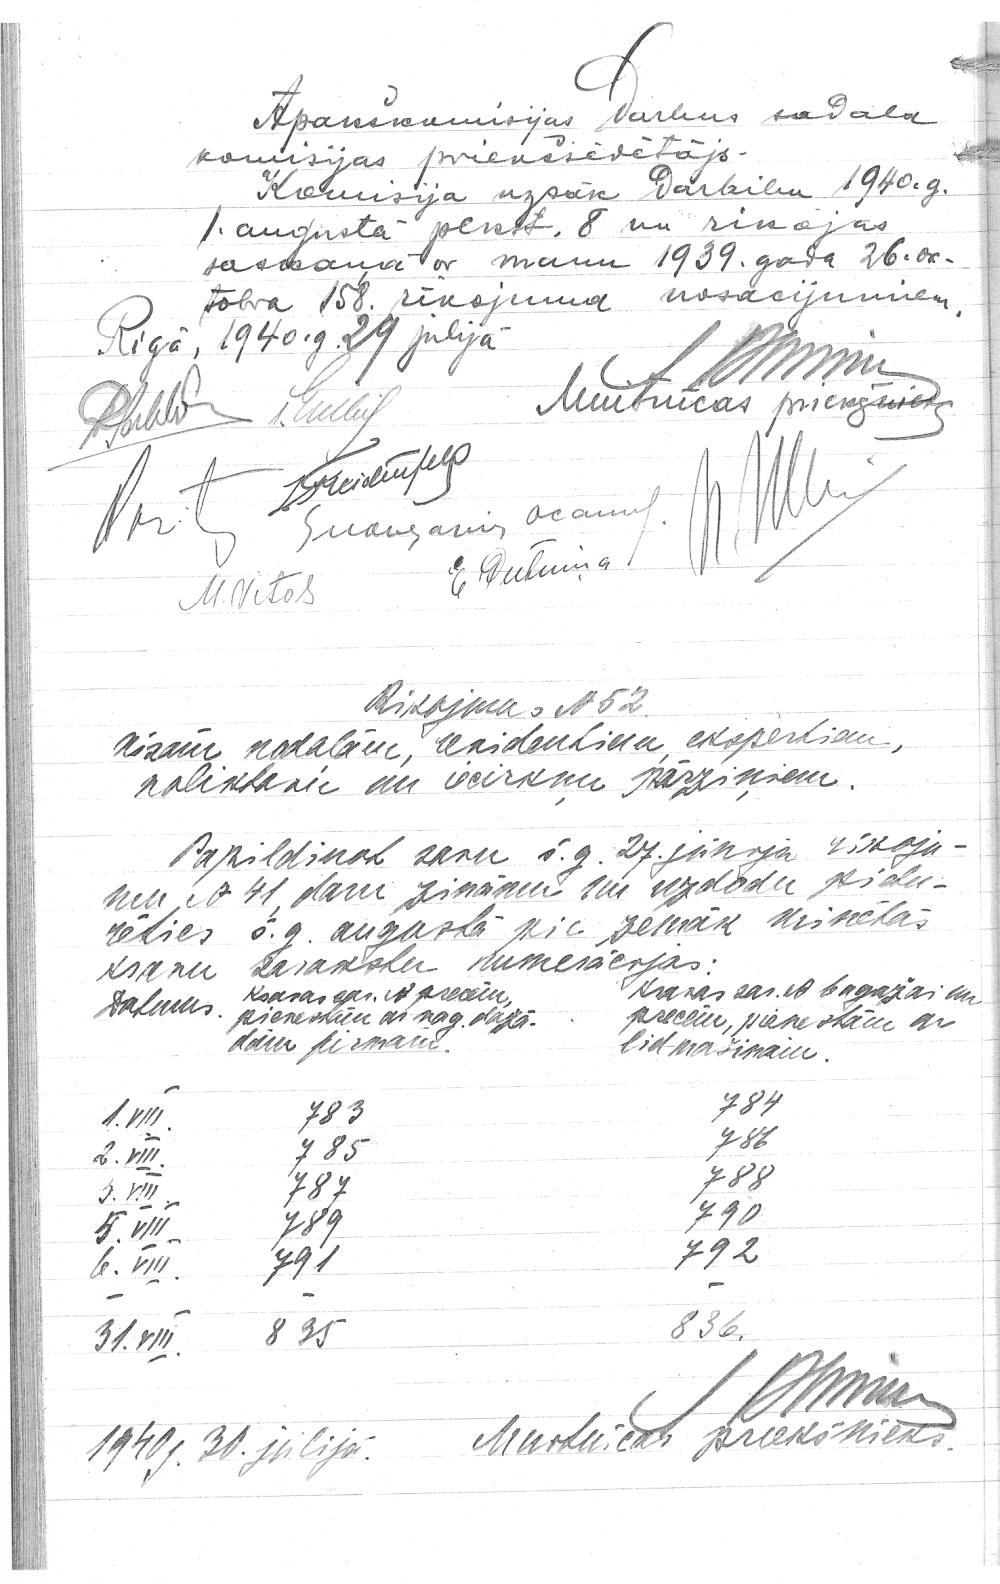 Apakškomisijas Darbus sadala
komisijas priekšsēdētājs.
Komisija uzsāk Darbību 1940.g.
1. augustā plkst. 8 un rīkojas
saskaņā ar manu 1939. gada 26. ok-
tobra 158. rīkojuma nosacījumiem.
Rīgā, 1940.g. 29 jūlijā
Muitnīcas priekšnieks
E Dutmiņa
M. Vītols
Rīkojums № 52
Visām nodaļām, rezidentiem, ekspertiem,
noliktavu un iecirkņu pārziņiem.
Papildinot savu š.g. 27. jūnija rīkoju-
mu № 41, daru zināmu un uzdodu pietu-
rēties š.g. augustā pie zemāk minētās
kravu sarakstu numerācijas:
Datums. Kravas sar. № precēm, Kravas sar. № bagāžai un
pienestām ar kuģ. dažā- precēm, pienestām ar
dām firmām. lidmašīnām.
1. VIII. 783 784
2. VIII. 785 786
3. VIII. 787 788
5. VIII. 789 790
6. VIII. 791 792
– – –
31. VIII. 835 836.
1940g. 30. jūlijā. Muitnīcas priekšnieks.